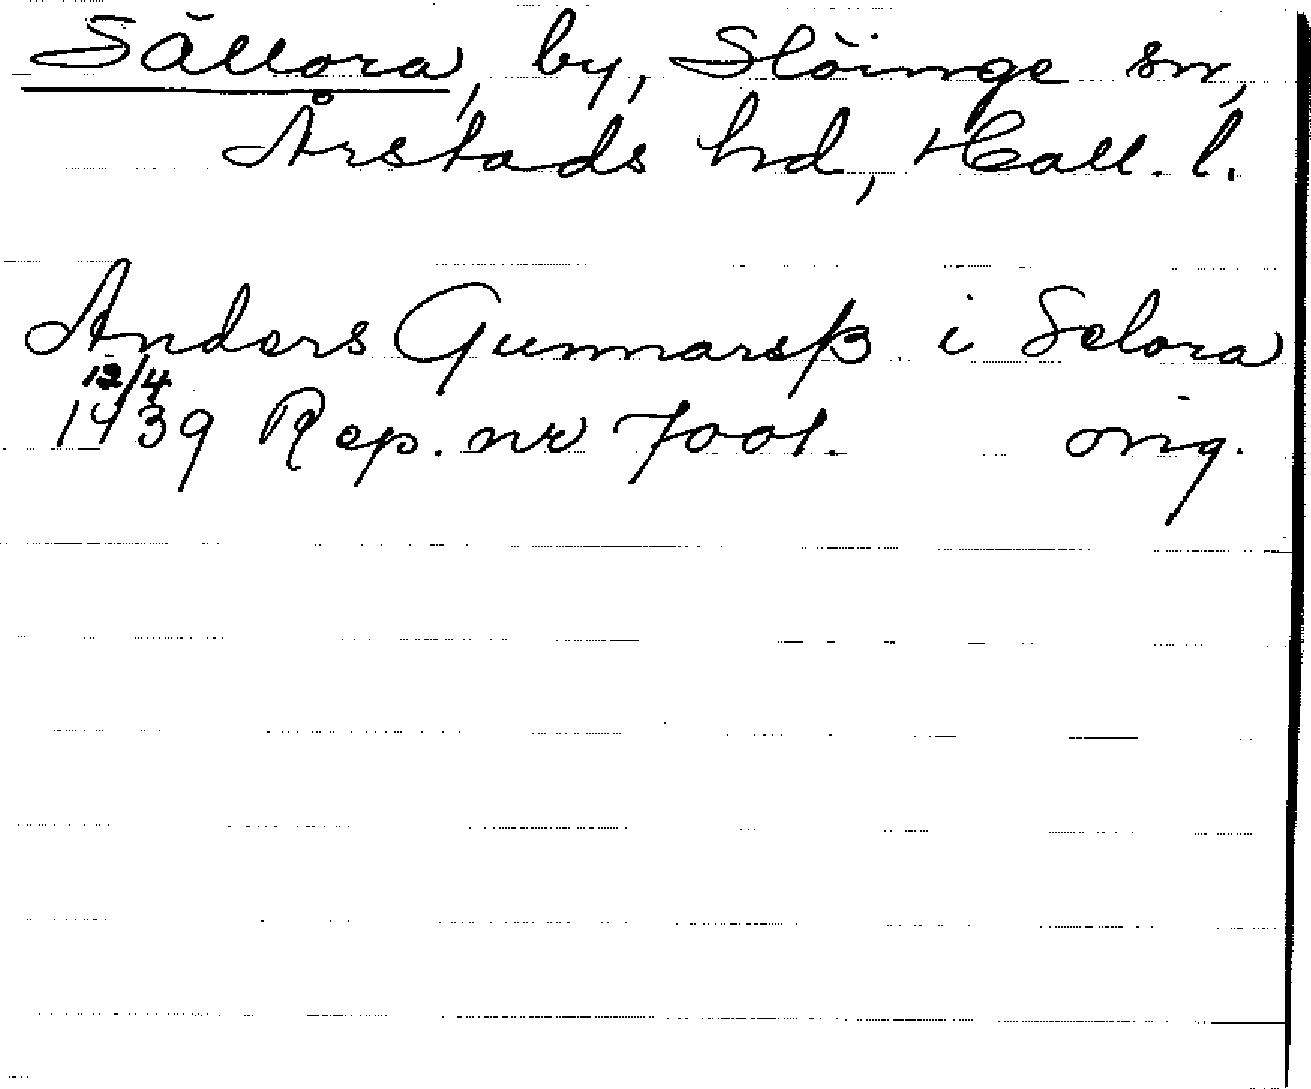 Sällora, by, Slöinge sn,
Årstads hd, Hall. l.
Anders Gunnarsβ i Selora
12/4
1439 Rep. nr 7001. orig.